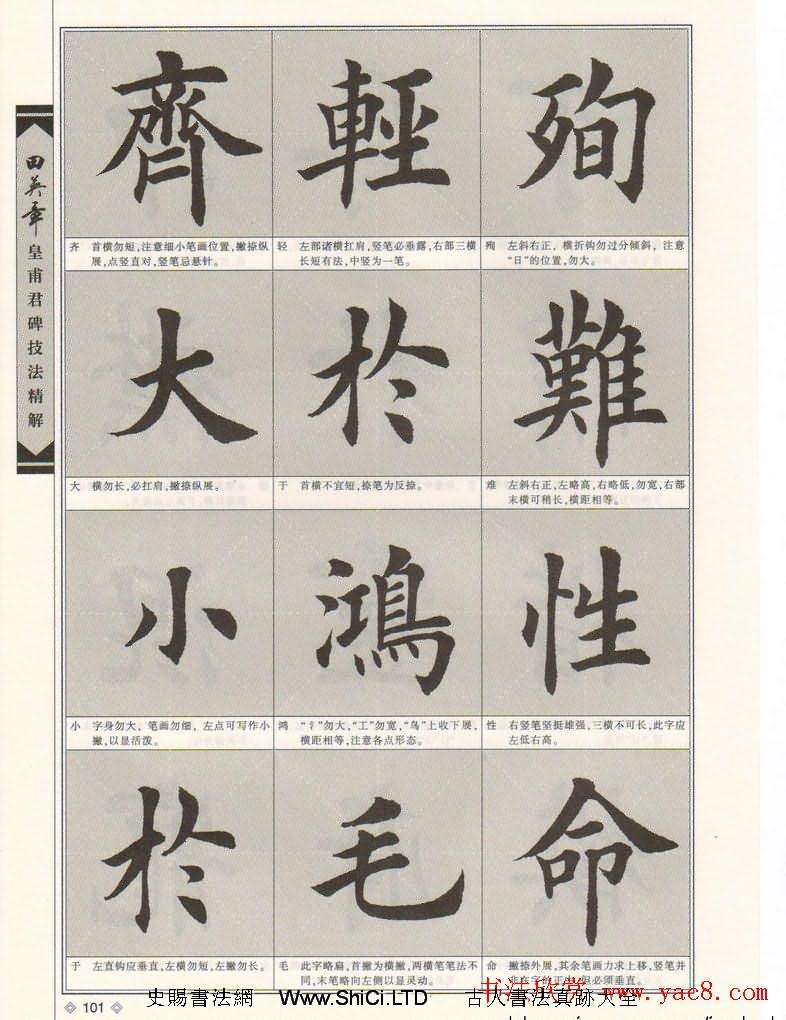 田英章
皇甫君碑技法精解
殉
左斜右正，横折钩勿过分倾斜，注意
“日”的位置，勿大。
殉
輕
左部诸横扛肩，竖笔必垂露，右部三横
长短有法，中竖为一笔。
轻
齊
首横勿短，注意细小笔画位置，撇捺纵
展，点竖直对，竖笔忌悬针。
齐
難
左斜右正，左略高，右略低，勿宽，右部
末横可稍长，横距相等。
难
於
首横不宜短，捺笔为反捺。
于
大
横勿长，必扛肩，撇捺纵展。
大
性
右竖笔坚挺雄强，三横不可长，此字应
左低右高。
性
鴻
“氵”勿大，“工”勿宽，“鸟”上收下展，
横距相等，注意各点形态。
鸿
小
字身勿大，笔画勿细，左点可写作小
撇，以显活泼。
小
命
撇捺外展，其余笔画力求上移，竖笔并
非在字的正中，但必须垂直。
命
毛
此字略扁，首撇为横撇，两横笔笔法不
同，末笔略向左侧以显灵动。
毛
於
左直钩应垂直，左横勿短，左撇勿长。
于
101
史賜書法網 Www.ShiCi.LTD 古人書法真跡大全
书江欣赏 www.yac8.com